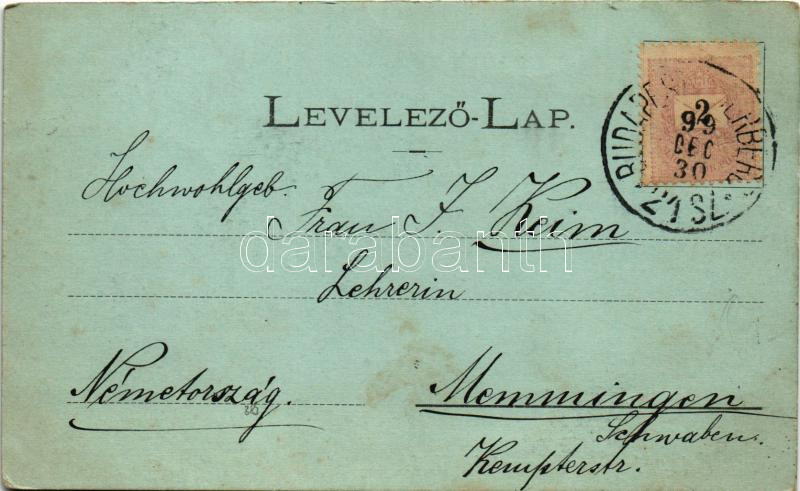 LEVELEZŐ-LAP.
2
99
DEC
30
Hochwohlgeb.
Frau J. Keim
darabanth
Lehrerin
Németország.
Memmingen
Schwaben.
Kempterstr.